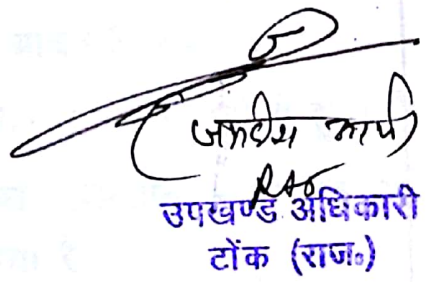 (जगदीश आर्य)
RAS
उपखण्ड अधिकारी
टोंक (राज०)